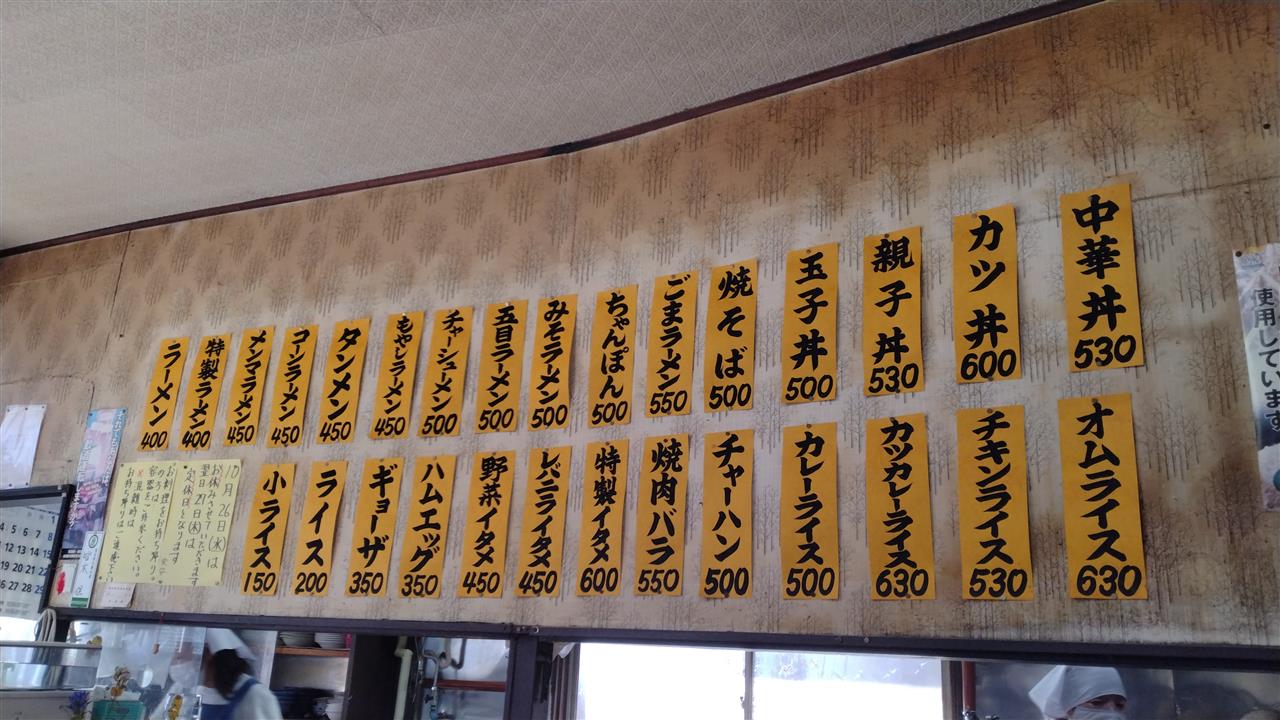 中華丼 530
カツ丼 600
親子丼 530
玉子丼 500
焼そば 500
ごまラーメン 550
ちゃんぽん 500
みそラーメン 500
五目ラーメン 500
チャーシューメン 500
もやしラーメン 450
タンメン 450
コーンラーメン 450
メンマラーメン 450
特製ラーメン 400
ラーメン 400
オムライス 630
チキンライス 530
カツカレーライス 630
カレーライス 500
チャーハン 500
焼肉バラ 550
特製イタメ 600
レバニライタメ 450
野菜イタメ 450
ハムエッグ 350
ギョーザ 350
ライス 200
小ライス 150
10月26日(水)は
お休みさせていただきます
翌日27日(木)は
定休日となります
お料理をお持ち帰り
の方は
容器をご持参ください。
※混雑時は
お持ち帰りはご遠慮下さい
使用しています